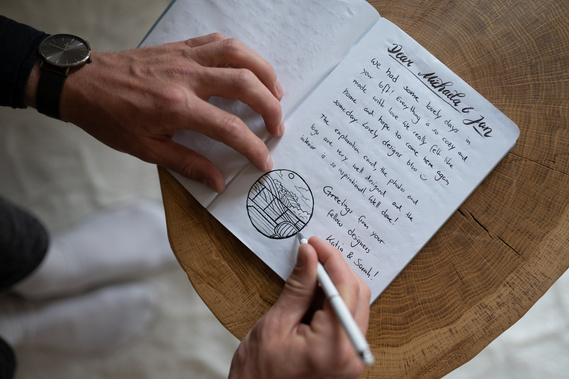 Dear Michaela & Jan
We had some lovely days in
your loft! Everything is so cosy and
made with love. We really felt like
home and hope to come here again
someday. Lovely designs btw :)
The explanation card, the photos and
logo are very well designed and the
interior is so inspirational. Well done!
Greetings from your
fellow designers
Katja & Sarah!